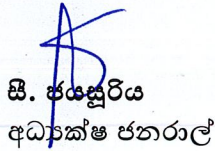 සී. ජයසූරිය
අධ්‍යක්ෂ ජනරාල්